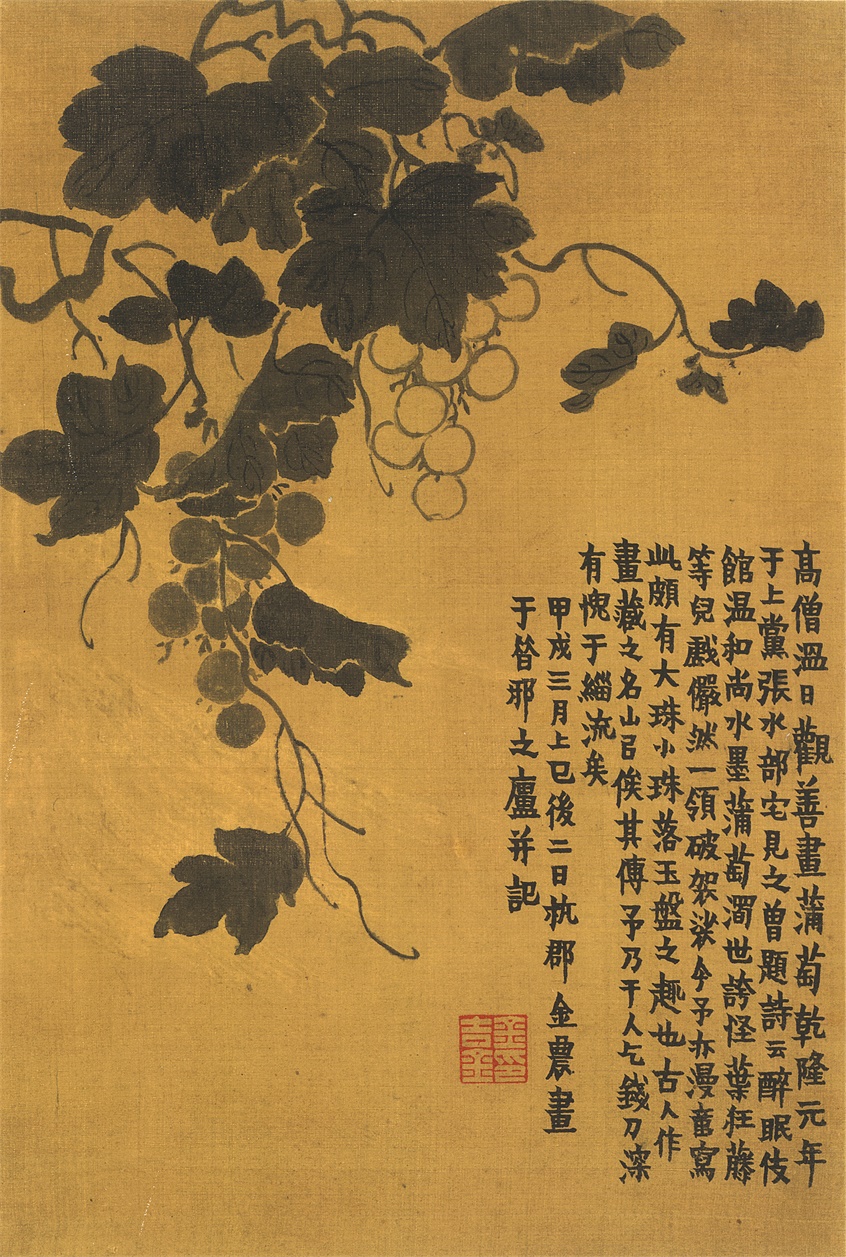 高僧溫日觀善畫蒲萄乾隆元年
于上黨張水部宅見之曾題詩云醉眠伎
館溫和尚水墨蒲萄濁世誇怪葉狂藤
等兒戲儼然一領破袈裟今予亦漫畫寫
此頗有大珠小珠落玉盤之趣也古人作
畫藏之名山㠯俟其傳予乃干人乞錢刀深
有愧于緇流矣
甲戌三月上巳後二日杭郡金農畫
于昔邪之廬并記